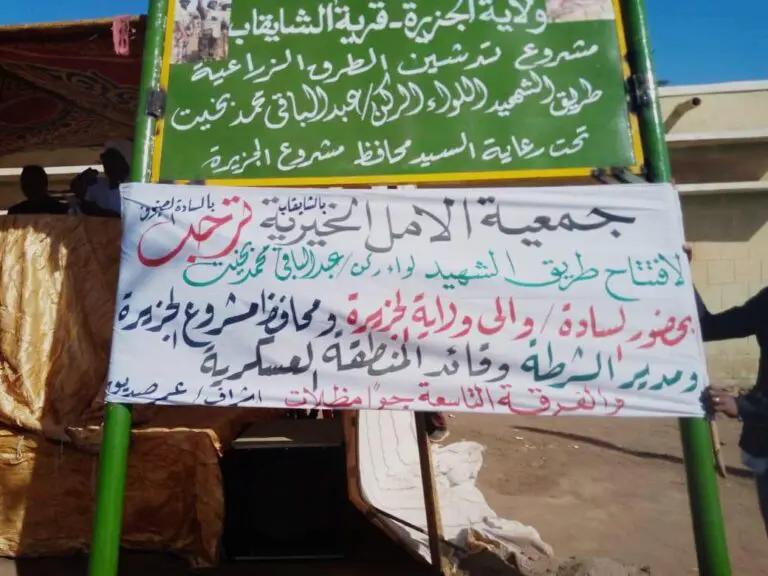 ولاية الجزيرة - قرية الشايقاب
مشروع تدشين الطرق الزراعية
طريق الشهيد اللواء الركن/عبدالباقي محمد بخيت
تحت رعاية السيد محافظ مشروع الجزيرة
جمعية الامل الخيرية بالشايقاب ترحب بالسادة الضيوف
لافتتاح طريق الشهيد لواء ركن/عبدالباقي محمد بخيت
بحضور لسادة/والى ولاية لجزيرة ومحافظ مشروع لجزيرة
ومدير الشرطة وقائد المنطقة لعسكرية
والفرقة التاسعة جوا مظلات اشراف/عمر صديق